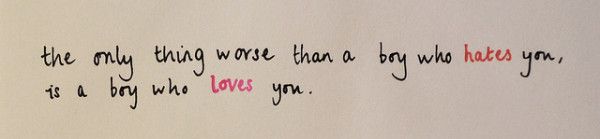 the only thing worse than a boy who hates you,
is a boy who loves you.